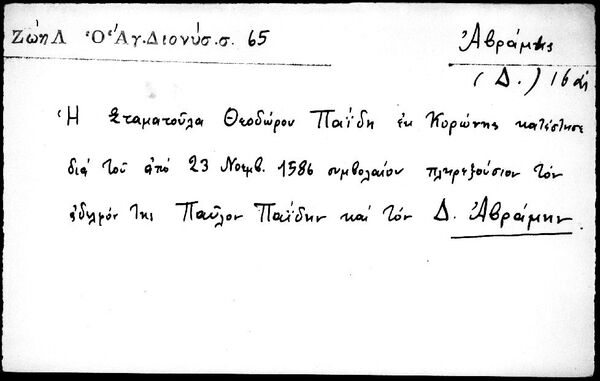 ΖώηΛ Ὁ Ἅγ.Διονύσ.σ. 65
Ἀβράμης
(Δ.) 16 αἰ
Ἡ Σταματοῦλα Θεοδώρου Παΐδη ἐκ Κορώνης κατέστησε
διά τοῦ ἀπό 23 Νοεμβ. 1586 συμβολαίου πληρεξούσιον τόν
ἀδελφόν της Παῦλον Παΐδην καί τόν Δ. Ἀβράμην.